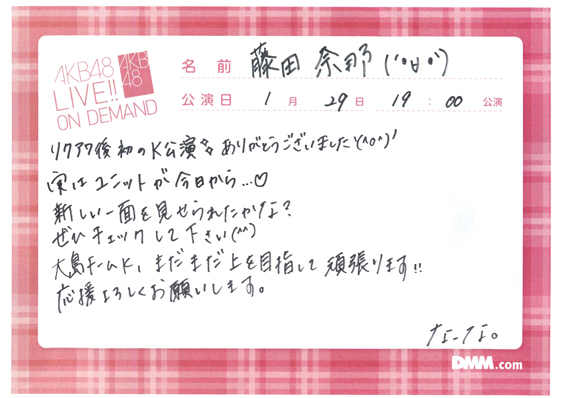 AKB48
LIVE!!
ON DEMAND
AKB
48
名前 藤田奈那(°∀°)
公演日 1月29日 19:00公演
リクアワ後初のK公演☆ありがとうございました\(^o^)/
実はユニットが今日から…♡
新しい一面を見せられたかな?
ぜひチェックして下さい(^^)
大島チームK、まだまだ上を目指して頑張ります!!
応援よろしくお願いします。
なーな。
DMM.com